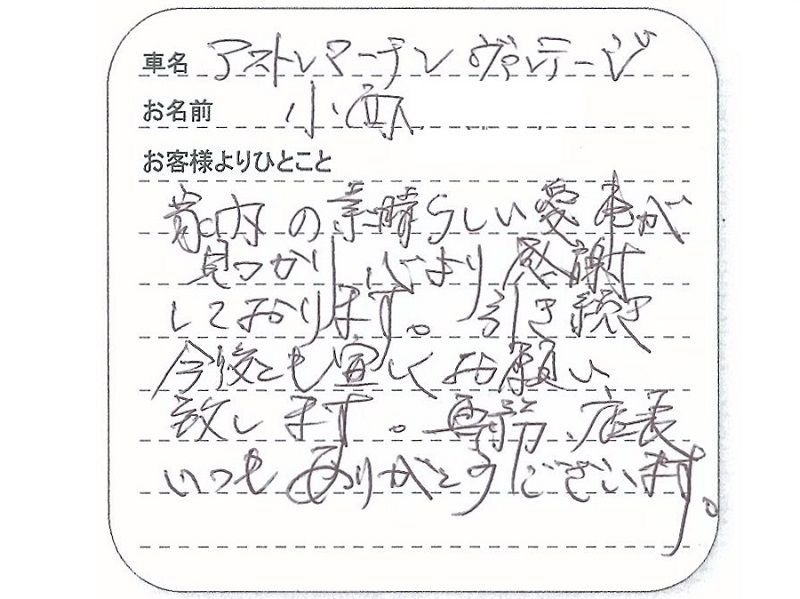 車名 アストンマーチン ヴァンテージ
お名前 小
お客様よりひとこと
の素晴らしい愛車が
見つかり、心より感謝
しております。引き続き
今後とも宜しくお願い
致します。専務、店長
いつもありがとうございます。